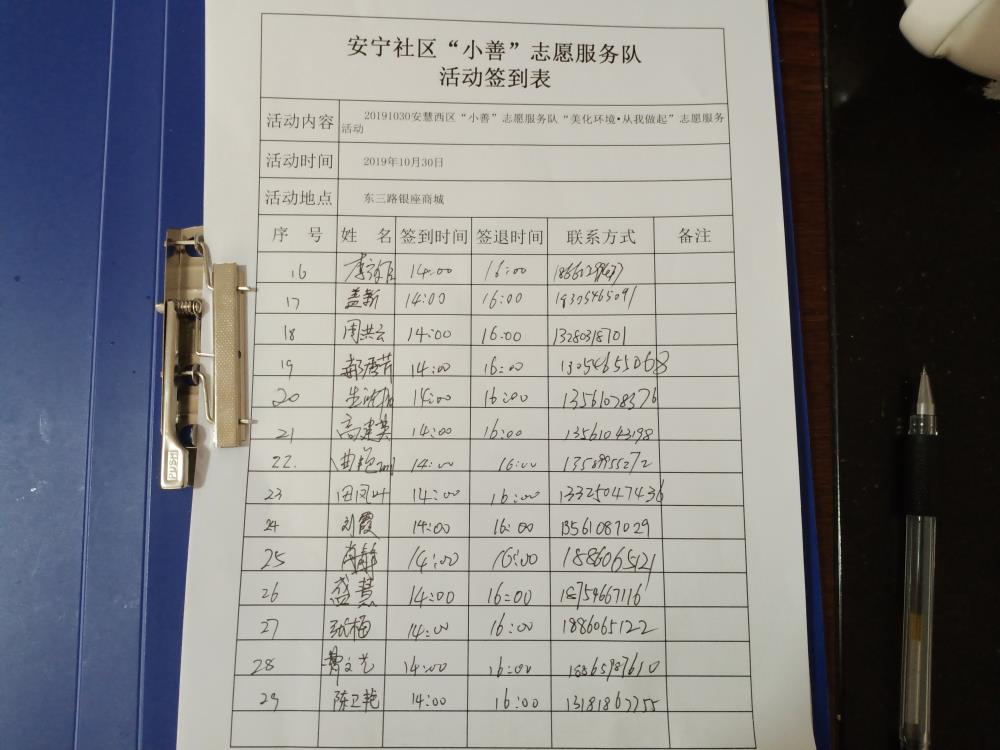 安宁社区“小善”志愿服务队
活动签到表
活动内容 20191030安慧西区“小善”志愿服务队“美化环境•从我做起”志愿服务
活动
活动时间 2019年10月30日
活动地点 东三路银座商城
序 号 姓 名 签到时间 签退时间 联系方式 备注
16 14:00 16:00
17 盖新 14:00 16:00
18 周洪云 14:00 16:00 13280318701
19 14:00 16:00 13054655068
20 14:00 16:00 13561078376
21 高建英 14:00 16:00 13561043198
22. 14:00 16:00
23 田凤叶 14:00 16:00 13325047436
24 刘霞 14:00 16:00 13561087029
25 14:00 16:00 1886065121
26 盛慧 14:00 16:00 18754667116
27 张梅 14:00 16:00 1886065122
28 14:00 16:00 18865987610
29 陈卫艳 14:00 16:00 13181867755
PUSH